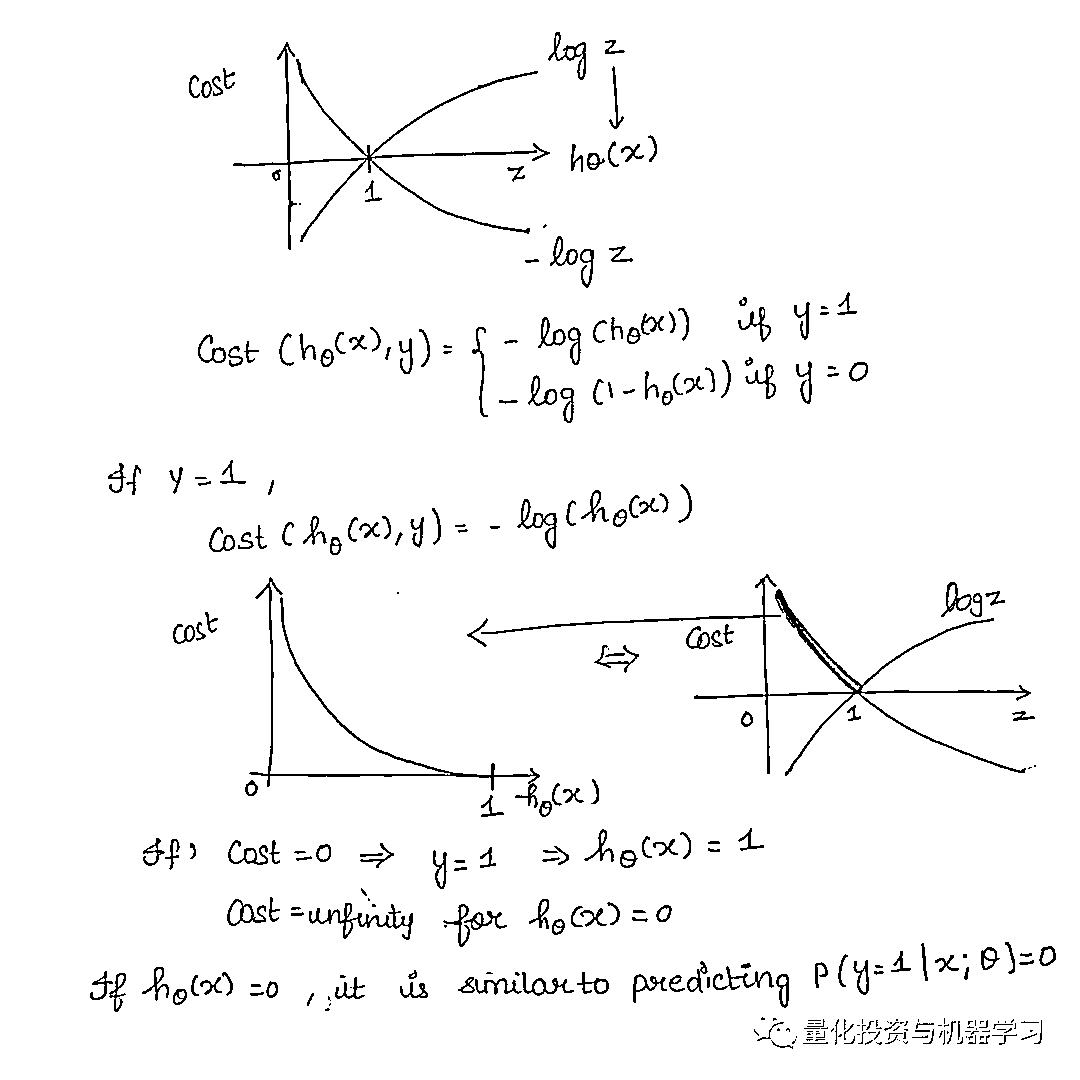 log z
Cost
hθ(x)
0
1
z
- log z
Cost (hθ(x), y) = { - log (hθ(x)) if y = 1
- log (1 - hθ(x)) if y = 0
If y = 1 ,
Cost ( hθ(x), y) = - log ( hθ(x) )
Cost
0
1 hθ(x)
⇔
Cost
log z
0
1
z
If, Cost = 0 ⇒ y = 1 ⇒ hθ(x) = 1
Cost = infinity for hθ(x) = 0
If hθ(x) = 0 , it is similar to predicting P(y=1|x; θ) = 0
量化投资与机器学习